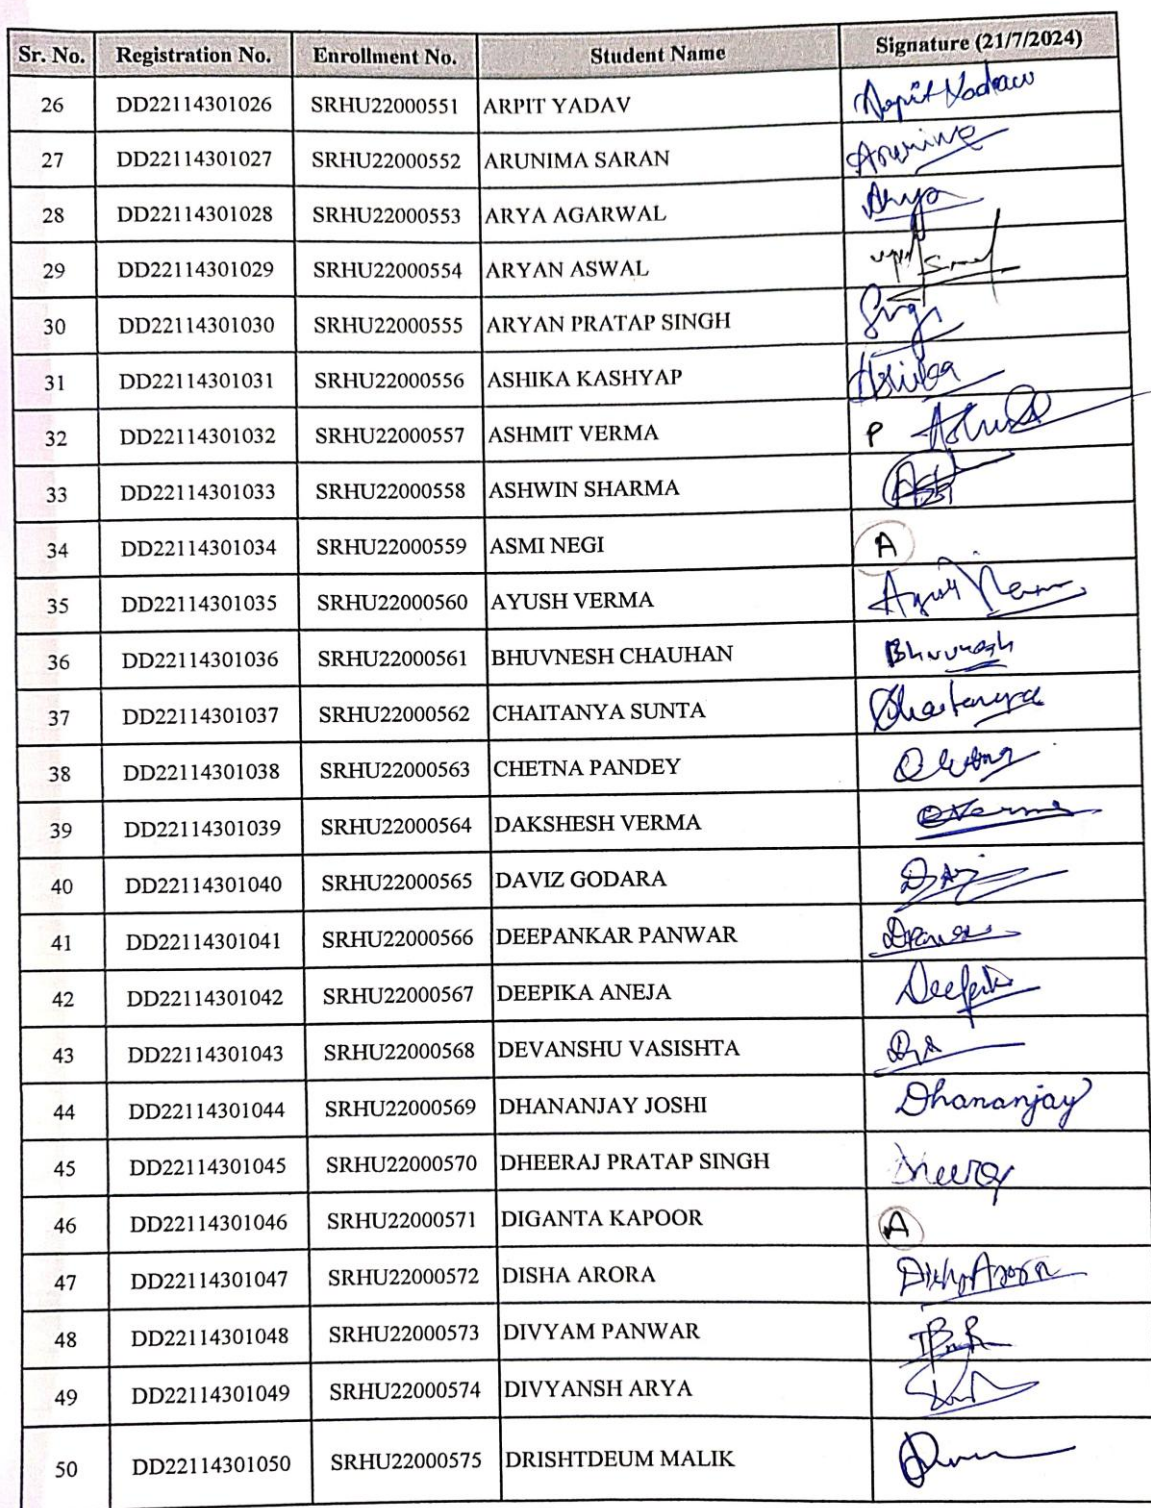 Sr. No. Registration No. Enrollment No. Student Name Signature (21/7/2024)
26 DD22114301026 SRHU22000551 ARPIT YADAV Arpit Yadav
27 DD22114301027 SRHU22000552 ARUNIMA SARAN Arunima
28 DD22114301028 SRHU22000553 ARYA AGARWAL Arya
29 DD22114301029 SRHU22000554 ARYAN ASWAL
30 DD22114301030 SRHU22000555 ARYAN PRATAP SINGH
31 DD22114301031 SRHU22000556 ASHIKA KASHYAP Ashika
32 DD22114301032 SRHU22000557 ASHMIT VERMA P
33 DD22114301033 SRHU22000558 ASHWIN SHARMA
34 DD22114301034 SRHU22000559 ASMI NEGI A
35 DD22114301035 SRHU22000560 AYUSH VERMA Ayush Verma
36 DD22114301036 SRHU22000561 BHUVNESH CHAUHAN Bhuvnesh
37 DD22114301037 SRHU22000562 CHAITANYA SUNTA Chaitanya
38 DD22114301038 SRHU22000563 CHETNA PANDEY Chetna
39 DD22114301039 SRHU22000564 DAKSHESH VERMA DVerma
40 DD22114301040 SRHU22000565 DAVIZ GODARA
41 DD22114301041 SRHU22000566 DEEPANKAR PANWAR
42 DD22114301042 SRHU22000567 DEEPIKA ANEJA Deepika
43 DD22114301043 SRHU22000568 DEVANSHU VASISHTA
44 DD22114301044 SRHU22000569 DHANANJAY JOSHI Dhananjay
45 DD22114301045 SRHU22000570 DHEERAJ PRATAP SINGH Dheeraj
46 DD22114301046 SRHU22000571 DIGANTA KAPOOR A
47 DD22114301047 SRHU22000572 DISHA ARORA Disha Arora
48 DD22114301048 SRHU22000573 DIVYAM PANWAR
49 DD22114301049 SRHU22000574 DIVYANSH ARYA
50 DD22114301050 SRHU22000575 DRISHTDEUM MALIK